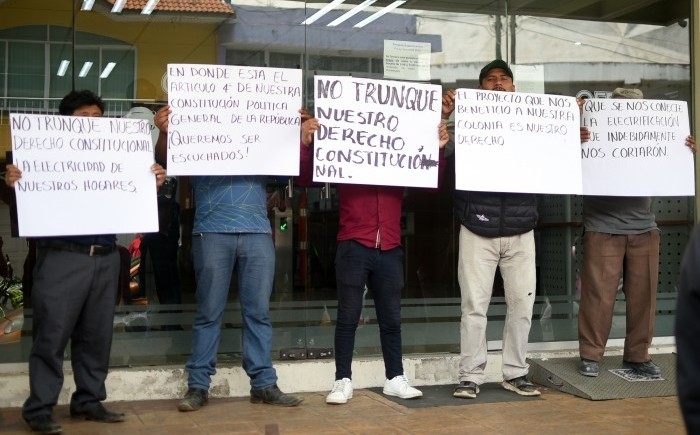 NO TRUNQUE NUESTRO
DERECHO CONSTITUCIONAL
LA ELECTRICIDAD DE
NUESTROS HOGARES.
EN DONDE ESTA EL
ARTICULO 4° DE NUESTRA
CONSTITUCIÓN POLITICA
GENERAL DE LA REPÚBLICA
¡QUEREMOS SER
ESCUCHADOS!
NO TRUNQUE
NUESTRO
DERECHO
CONSTITUCIÓN
NAL.
EL PROYECTO QUE NOS
BENEFICIO A NUESTRA
COLONIA ES NUESTRO
DERECHO
QUE SE NOS CONECTE
LA ELECTRIFICACIÓN
QUE INDEBIDAMENTE
NOS CORTARÓN.